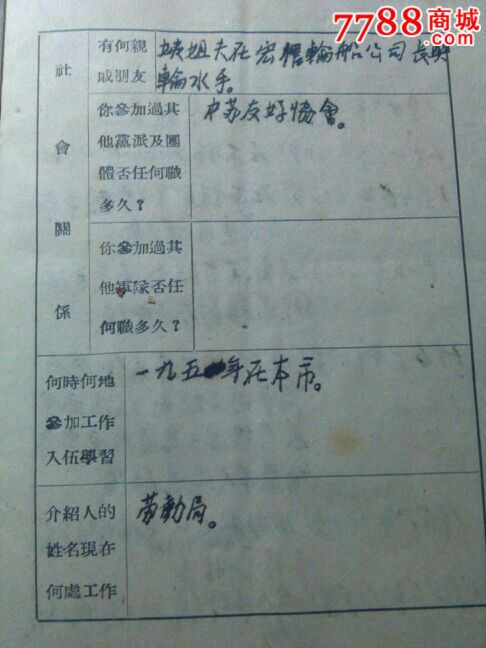 7788商城
.com
社會關係
有何親
戚朋友
姨姐夫在宏楷輪船公司長興
輪水手。
你參加過其
他黨派及團
體否任何職
多久?
中苏友好協會。
你參加過其
他軍隊否任
何職多久?
何時何地
參加工作
入伍學習
一九五 年在本市。
介紹人的
姓名現在
何處工作
劳動局。